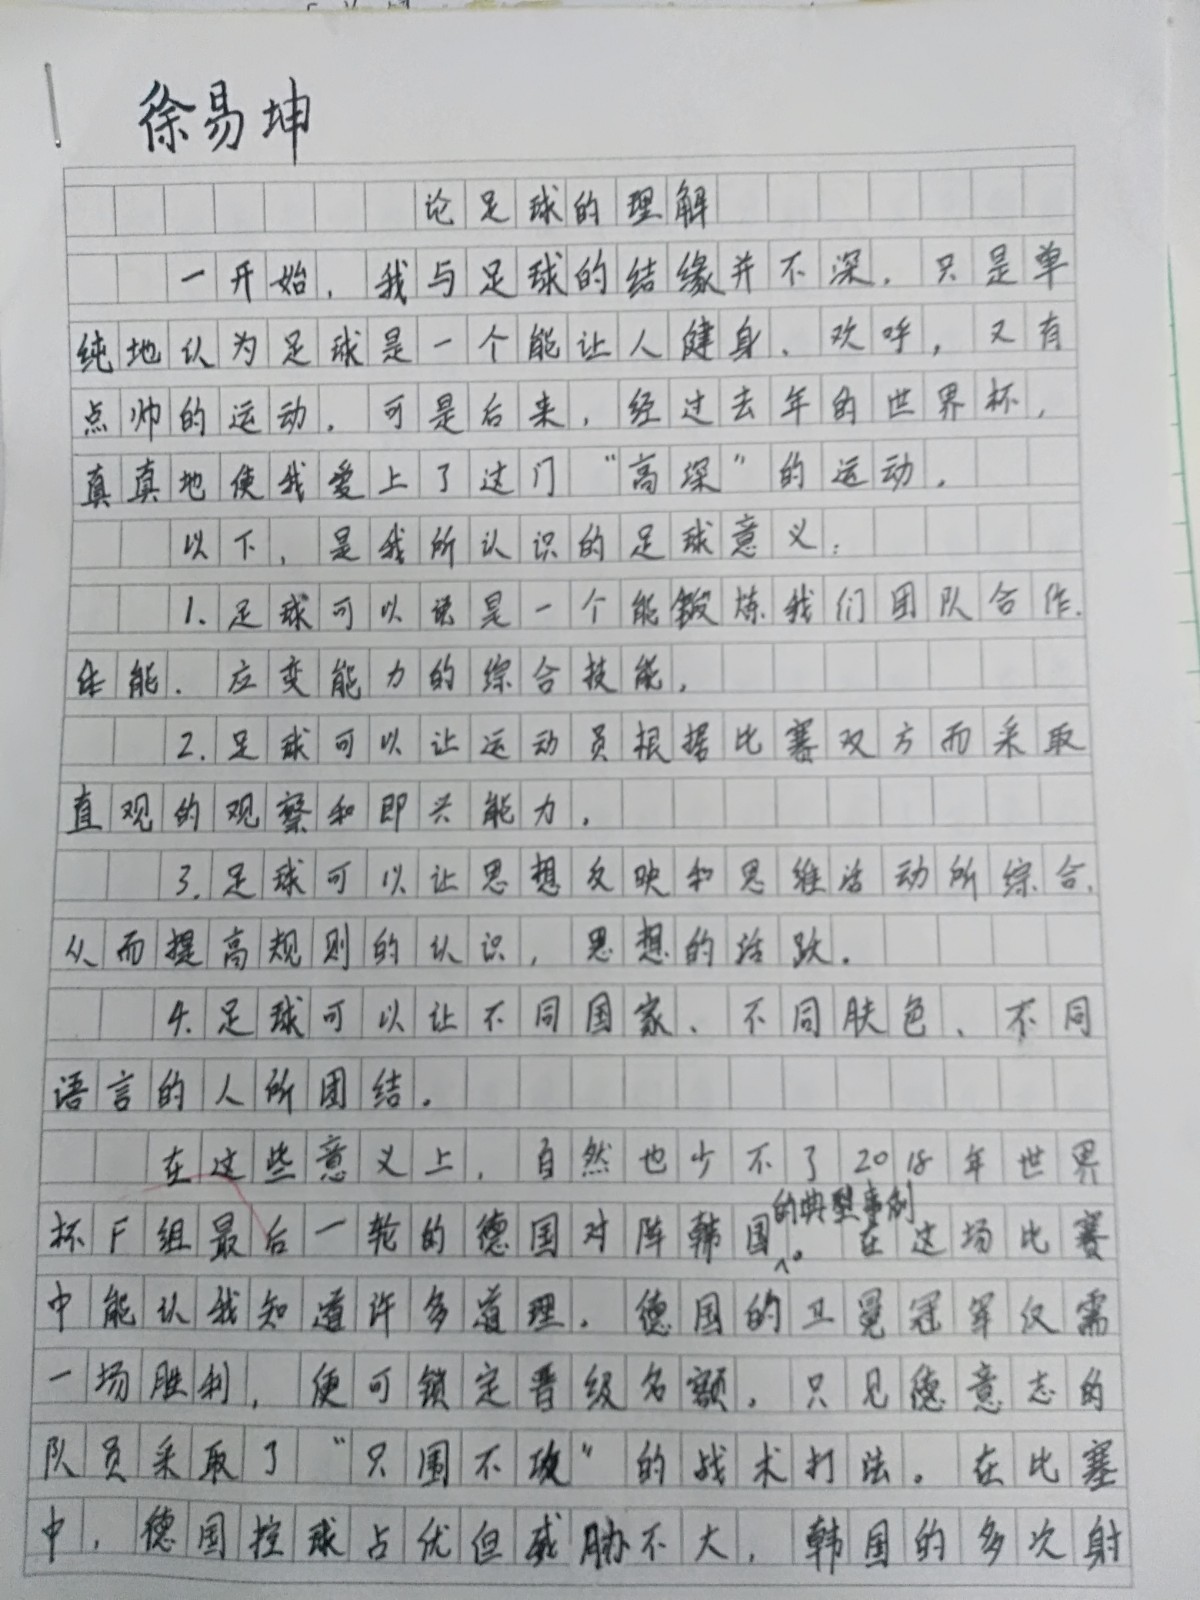 徐易坤
论足球的理解
一开始，我与足球的结缘并不深，只是单
纯地认为足球是一个能让人健身、欢呼，又有
点帅的运动。可是后来，经过去年的世界杯，
真真地使我爱上了这门“高深”的运动。
以下，是我所认识的足球意义：
1.足球可以说是一个能锻炼我们团队合作、
体能、应变能力的综合技能。
2.足球可以让运动员根据比赛双方而采取
直观的观察和即兴能力。
3.足球可以让思想反映和思维活动所综合，
从而提高规则的认识，思想的活跃。
4.足球可以让不同国家、不同肤色、不同
语言的人所团结。
在这些意义上，自然也少不了2018年世界
杯F组最后一轮的德国对阵韩国的典型事例。在这场比赛
中能认我知道许多道理。德国的卫冕冠军仅需
一场胜利，便可锁定晋级名额。只见德意志的
队员采取了“只围不攻”的战术打法。在比赛
中，德国控球占优但威胁不大，韩国的多次射